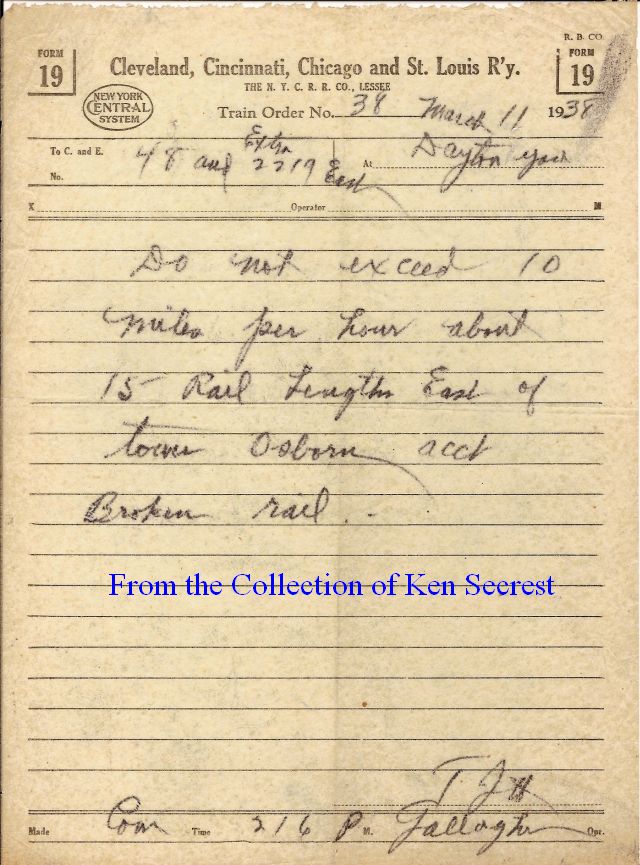 R. B. CO.
FORM 19
Cleveland, Cincinnati, Chicago and St. Louis R'y.
FORM 19
THE N. Y. C. R. R. CO., LESSEE
NEW YORK CENTRAL SYSTEM
Train Order No. 38 March 11 1938
To C. and E. 48 and Extra 2219 East At Dayton yard
No.
X Operator M
Do not exceed 10
Miles per hour about
15 Rail Lengths East of
tower Osborn acct
Broken rail.
From the Collection of Ken Secrest
T J H
Made Com Time 216 P M. Gallagher Opr.